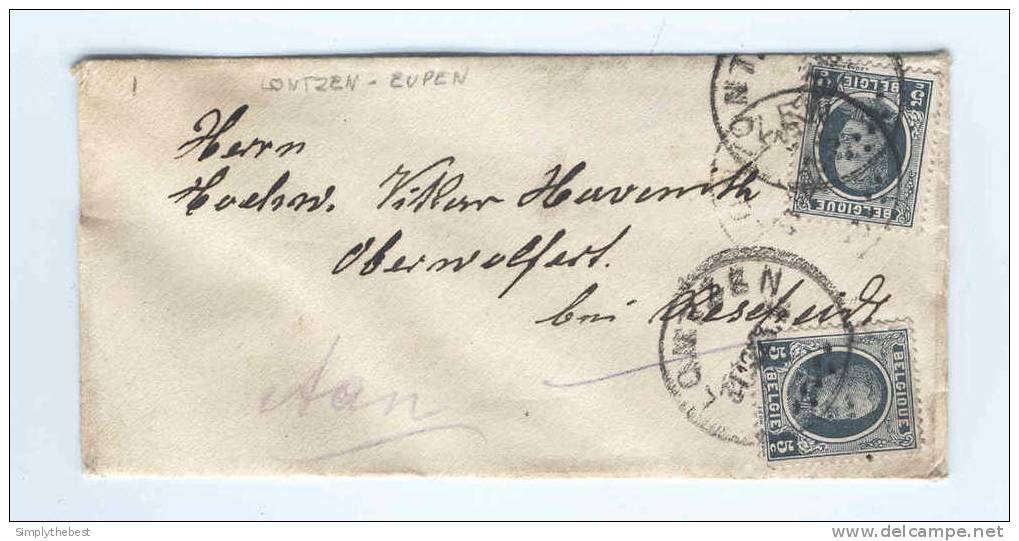 LONTZEN - EUPEN
Herrn
Hochw. Vikar Havenith
Oberwolfert.
bei Rescheidt
Aan
5c BELGIE 5c
BELGIQUE
BELGIQUE
5c BELGIE 5c
LONTZEN
Simplythebest
www.delcampe.net